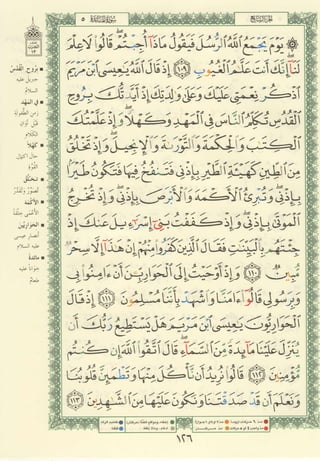 الجزء السابع
سورة المائدة ٥
۞ يَوْمَ يَجْمَعُ ٱللَّهُ ٱلرُّسُلَ فَيَقُولُ مَاذَآ أُجِبْتُمْ ۖ قَالُوا۟ لَا عِلْمَ
لَنَآ ۖ إِنَّكَ أَنتَ عَلَّٰمُ ٱلْغُيُوبِ ١٠٩ إِذْ قَالَ ٱللَّهُ يَٰعِيسَى ٱبْنَ مَرْيَمَ
ٱذْكُرْ نِعْمَتِى عَلَيْكَ وَعَلَىٰ وَٰلِدَتِكَ إِذْ أَيَّدتُّكَ بِرُوحِ
ٱلْقُدُسِ تُكَلِّمُ ٱلنَّاسَ فِى ٱلْمَهْدِ وَكَهْلًا ۖ وَإِذْ عَلَّمْتُكَ
ٱلْكِتَٰبَ وَٱلْحِكْمَةَ وَٱلتَّوْرَىٰةَ وَٱلْإِنجِيلَ ۖ وَإِذْ تَخْلُقُ
مِنَ ٱلطِّينِ كَهَيْـَٔةِ ٱلطَّيْرِ بِإِذْنِى فَتَنفُخُ فِيهَا فَتَكُونُ طَيْرًۢا
بِإِذْنِى ۖ وَتُبْرِئُ ٱلْأَكْمَهَ وَٱلْأَبْرَصَ بِإِذْنِى ۖ وَإِذْ تُخْرِجُ
ٱلْمَوْتَىٰ بِإِذْنِى ۖ وَإِذْ كَفَفْتُ بَنِىٓ إِسْرَٰٓءِيلَ عَنكَ إِذْ
جِئْتَهُم بِٱلْبَيِّنَٰتِ فَقَالَ ٱلَّذِينَ كَفَرُوا۟ مِنْهُمْ إِنْ هَٰذَآ إِلَّا سِحْرٌ
مُّبِينٌ ١١٠ وَإِذْ أَوْحَيْتُ إِلَى ٱلْحَوَارِيِّـۧنَ أَنْ ءَامِنُوا۟ بِى
وَبِرَسُولِى قَالُوٓا۟ ءَامَنَّا وَٱشْهَدْ بِأَنَّنَا مُسْلِمُونَ ١١١ إِذْ قَالَ
ٱلْحَوَارِيُّونَ يَٰعِيسَى ٱبْنَ مَرْيَمَ هَلْ يَسْتَطِيعُ رَبُّكَ أَن
يُنَزِّلَ عَلَيْنَا مَآئِدَةً مِّنَ ٱلسَّمَآءِ ۖ قَالَ ٱتَّقُوا۟ ٱللَّهَ إِن كُنتُم
مُّؤْمِنِينَ ١١٢ قَالُوا۟ نُرِيدُ أَن نَّأْكُلَ مِنْهَا وَتَطْمَئِنَّ قُلُوبُنَا
وَنَعْلَمَ أَن قَدْ صَدَقْتَنَا وَنَكُونَ عَلَيْهَا مِنَ ٱلشَّٰهِدِينَ ١١٣
بروح القدس
جبريل عليه
السلام
في المهد
زمن الطفولة
قبل أوان
الكلام
كهلاً
تخلق
تصور وتقدر
الأكمه
الحواريين
عليه السلام
مائدة
طعام
١٢٦